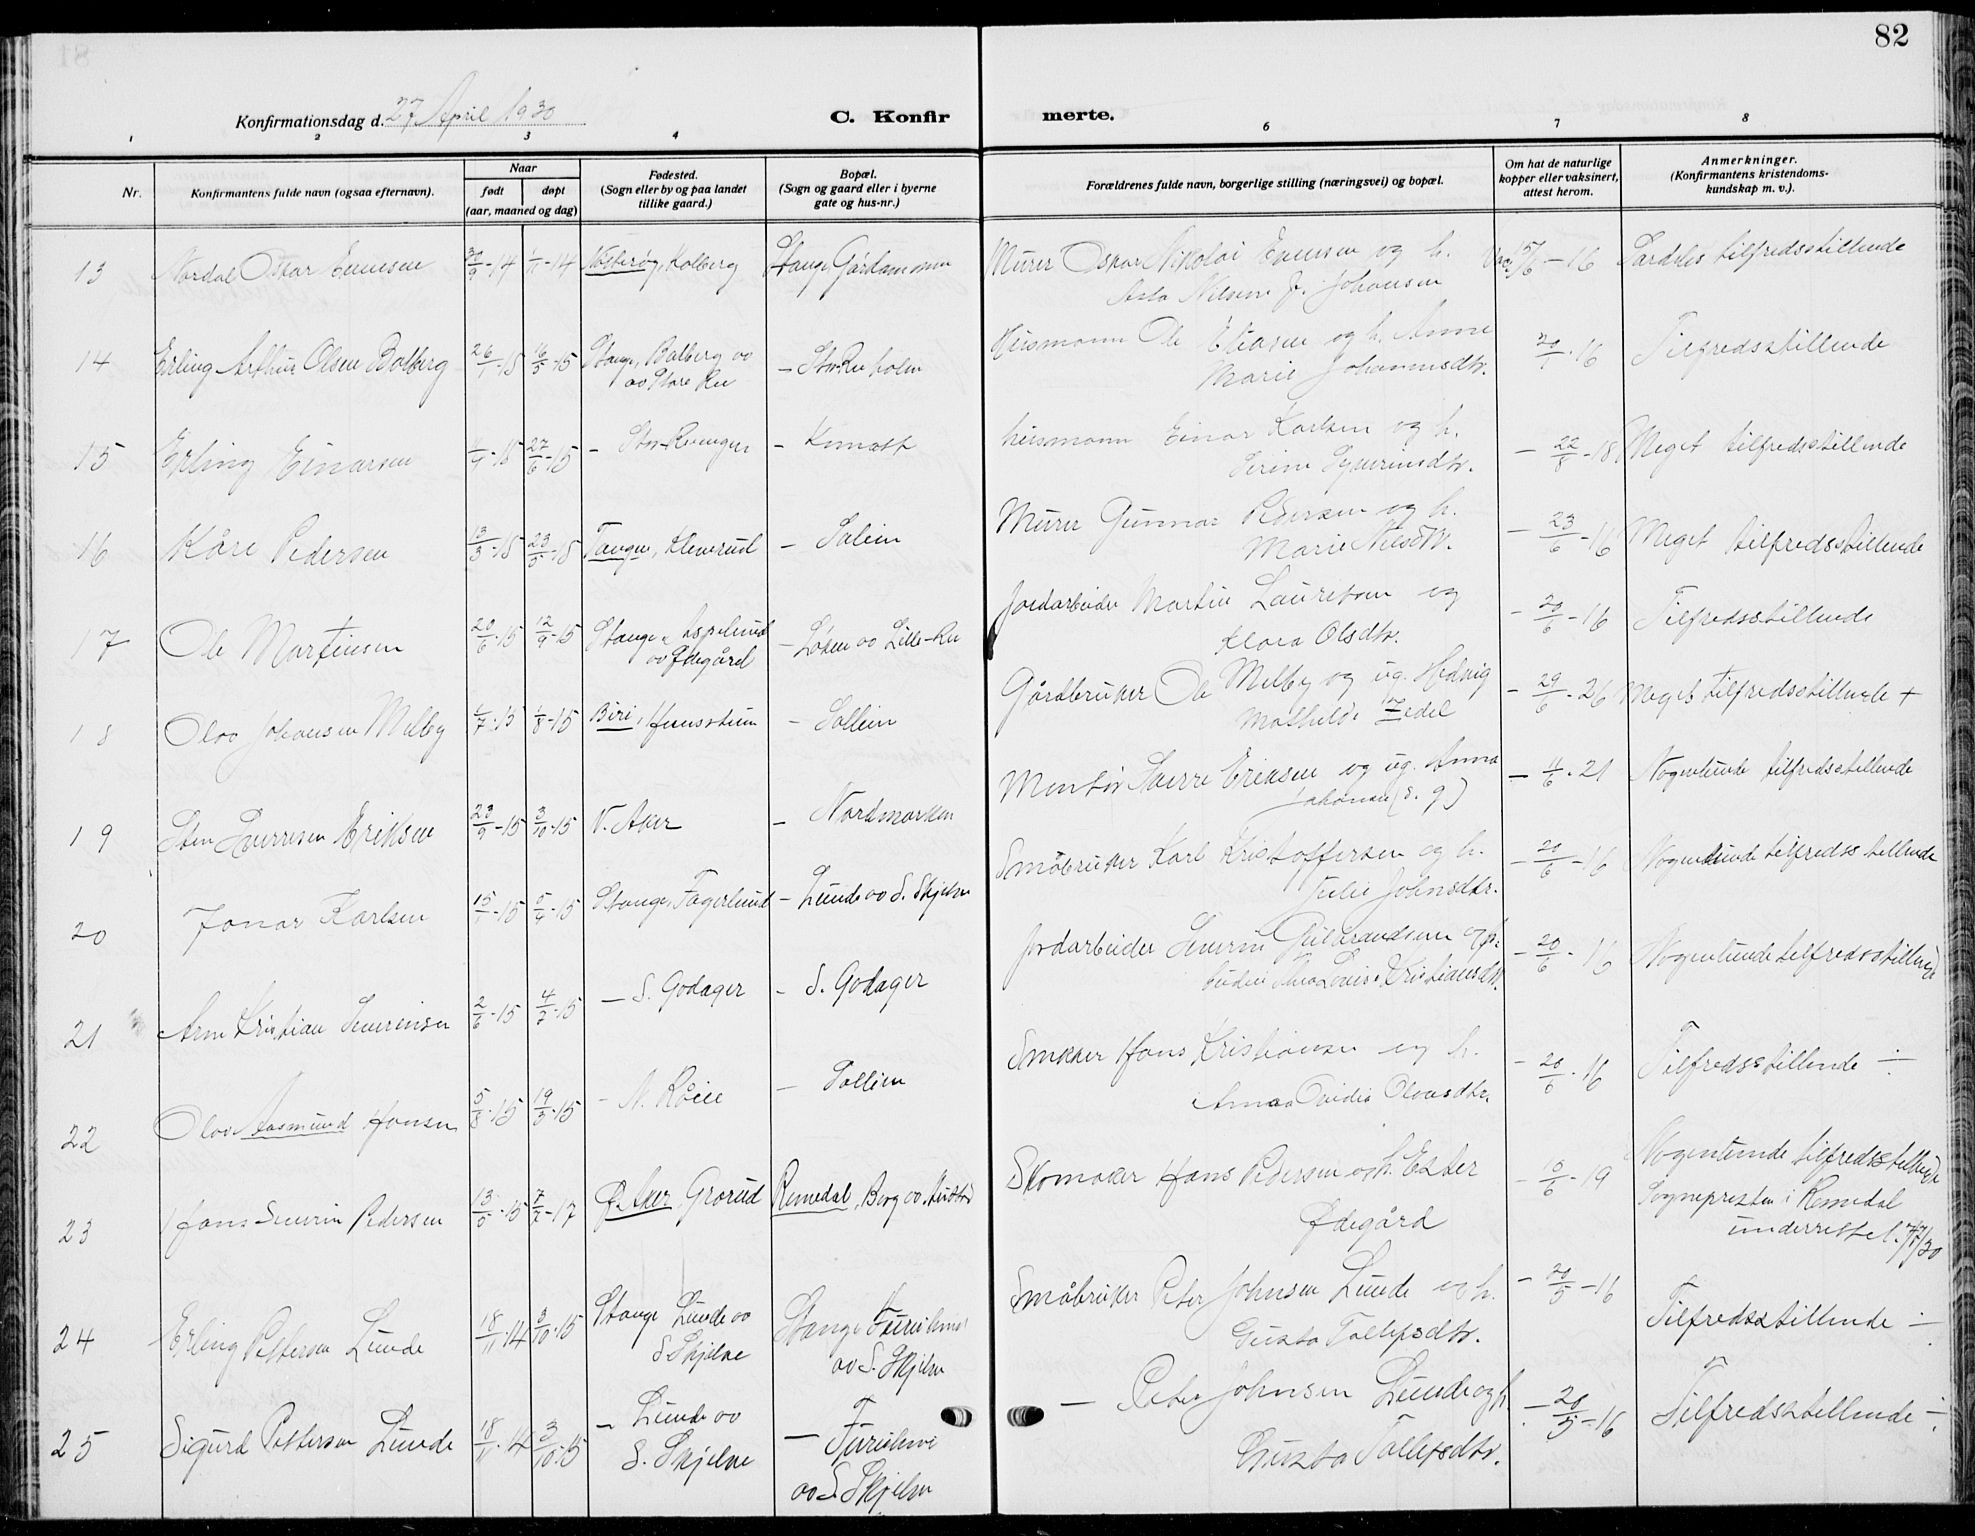 82
Konfirmationsdag d. 27 April 1930
C. Konfir merte.
1 2 3 4 6 7 8
Nr.
Konfirmantens fulde navn (ogsaa efternavn).
Naar
født døpt
(aar, maaned og dag)
Fødested.
(Sogn eller by og paa landet
tillike gaard.)
Bopæl.
(Sogn og gaard eller i byerne
gate og hus-nr.)
Forældrenes fulde navn, borgerlige stilling (næringsvei) og bopæl.
Om hat de naturlige
kopper eller vaksinert,
attest herom.
Anmerkninger.
(Konfirmantens kristendoms-
kundskap m. v.).
13 Nordal Oskar Evensen 30/9-14 1/11-14 Kolberg Stange
Murer Oskar Nikolai Evensen og h. Vac. 15/6-16 Særdeles tilfredsstillende
Asta Nilsen f. Johansen
14 Erling Arthur Olsen Bolberg 26/1-15 16/5-15 Stange, Bolberg av
av Store Ree
Husmann Ole og h. Anna 20/1-16 Tilfredsstillende
Marie Johannesdtr.
15 Erling Einarsen 27/6-15
husmann Einar Karlsen og h. - 22/8-18 Meget tilfredsstillende
16 Kåre Pedersen 13/3-15 23/5-15 Tangen, Kleverud - Solein
Murer Gunnar Pedersen og h. - 23/6-16 Meget tilfredsstillende
Marie Nilsdtr.
17 Ole Martinsen 20/6-15 12/9-15 Stange, Aspelund - Løken av Lille-Ree
av Ødegård
Jordarbeider Martin Lauritsen og - 20/6-16 Tilfredsstillende
Klara Olsdtr.
18 Olav Johansen Melby 1/7-15 1/8-15 Biri, - Sollein
Gårdbruker Ole Melby og ug. Hedvig - 29/6-26 Meget tilfredsstillende +
Mathilde
19 Sten Sverresen Eriksen 23/9-15 3/10-15 V. Aker - Nordmarken
Montør Sverre Eriksen og ug. Anna - 11/6-21 Nogenlunde tilfredsstillende
Johansen
20 Jonar Karlsen 15/1-15 5/4-15 Stange, Fagerlund - Lunde av S. Skjelve
Småbruker Karl Kristoffersen og h. - 20/6-16 Nogenlunde tilfredsstillende
Julie Johnsdtr.
21 Arne Kristian Severinsen 2/6-15 4/7-15 - S. Godager - S. Godager
Jordarbeider Severin Gulbrandsen og h. - 20/6-16 Nogenlunde tilfredsstillende
Louise Kristiansdtr.
22 Olav Aasmund Hansen 5/8-15 19/3-15 - N. Røise - Sollien
Snekker Hans Kristiansen og h. - 20/6-16 Tilfredsstillende ÷
Anna Ovidia Olavsdtr.
23 Hans Severin Pedersen 13/5-15 7/7-17 Ø. Aker, Grorud Romedal, Berg av
Skomaker Hans Pedersen og h. Ester - 15/6-19 Nogenlunde tilfredsstillende
Ødegård Sognepresten i Romedal
underrettet.
24 Erling Pettersen Lunde 18/11-14 3/10-15 Stange Lunde av Stange Furuheim
S. Skjelve av S. Skjelve
Småbruker Peter Johnsen Lunde og h. - 20/5-16 Tilfredsstillende ÷
Gusta Tollefsdtr.
25 Sigurd Pettersen Lunde 18/11-14 3/10-15 - Lunde av - Furuheim
S. Skjelve av S. Skjelve
- Peter Johnsen Lunde og h. - 20/5-16 Tilfredsstillende ÷
Gusta Tollefsdtr.